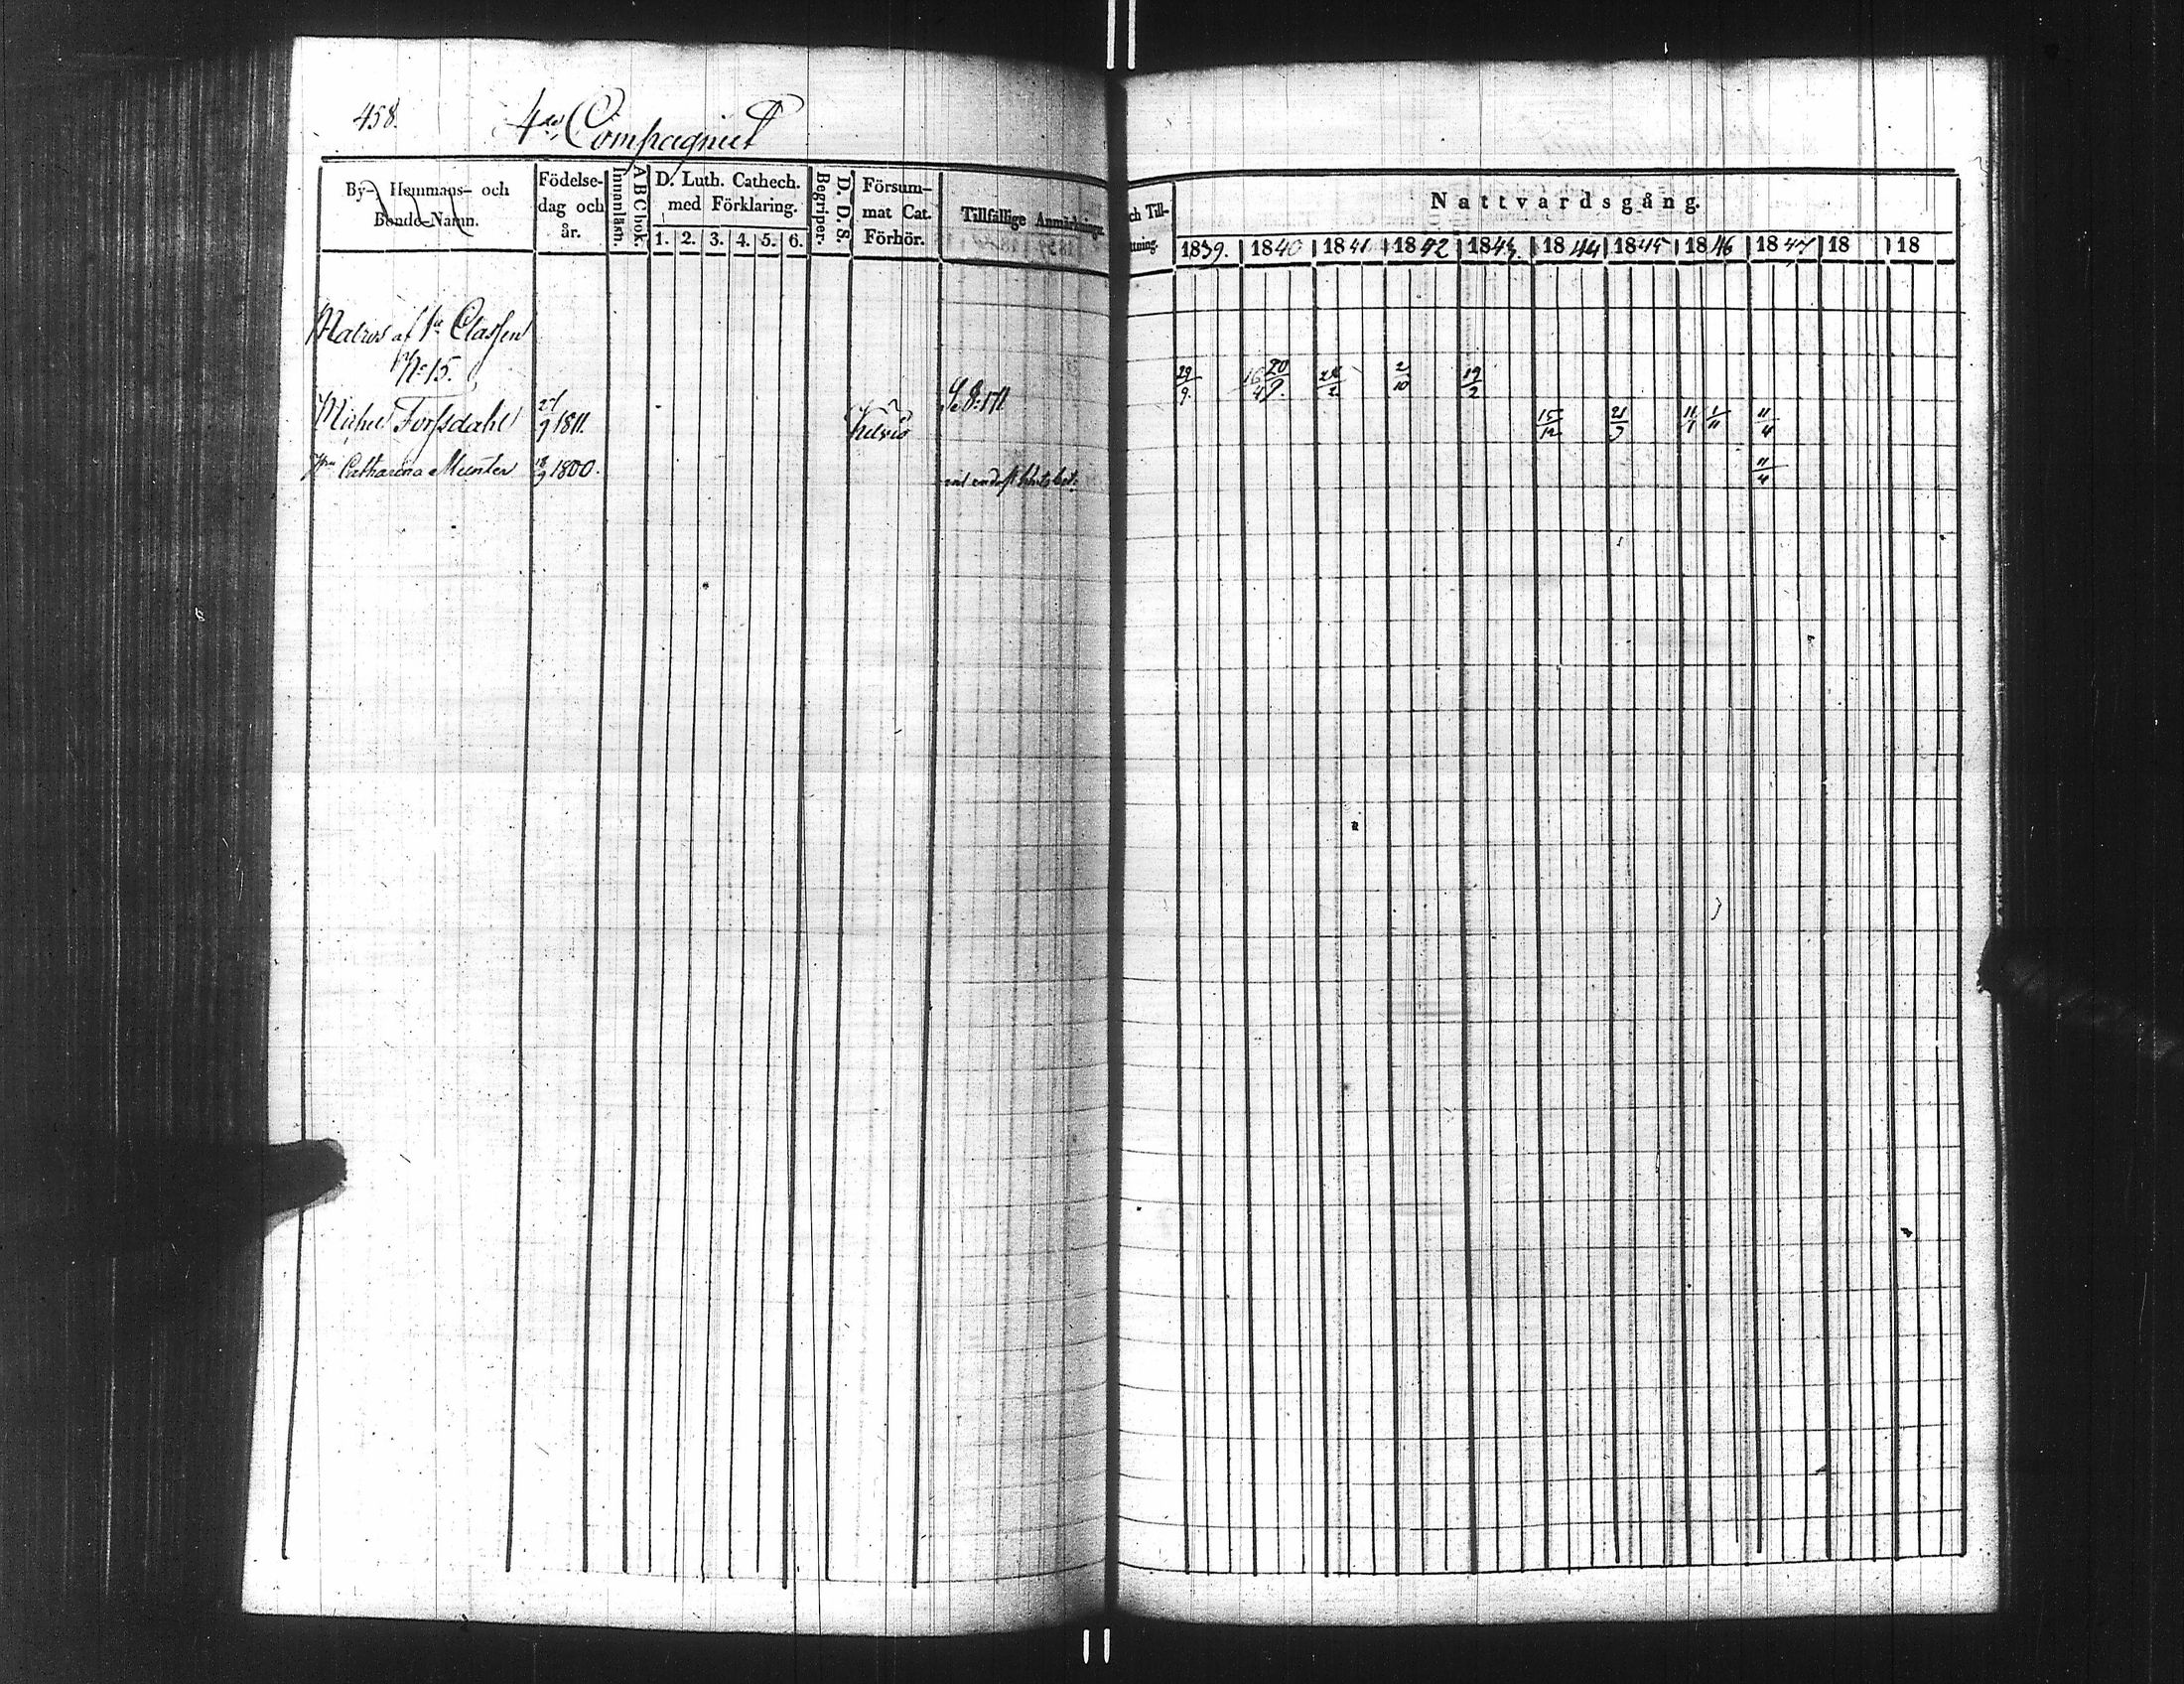 458.
4de Compagniet
By- Hemmans- och
Bonde-Namn.
Födelse-
dag och
år.
Innanläsn.
A B C bok.
D. Luth. Cathech.
med Förklaring.
1. 2. 3. 4. 5. 6.
Begriper.
D. D. S.
Försum-
mat Cat.
Förhör.
Tillfällige Anmärkningar
ch Till-
ttning.
Nattvardsgång.
1839. 1840 1841 1842 1843. 1844 1845 1846 1847 18 18
Matros af 1a Classen
No 15.
29/9. 16/4 20/9. 28/2 2/10 19/2
Michel Forssdahl 27/9 1811. 15/12 21/9 11/1 1/11 11/4
Catharina Munter 18/9 1800. 11/4